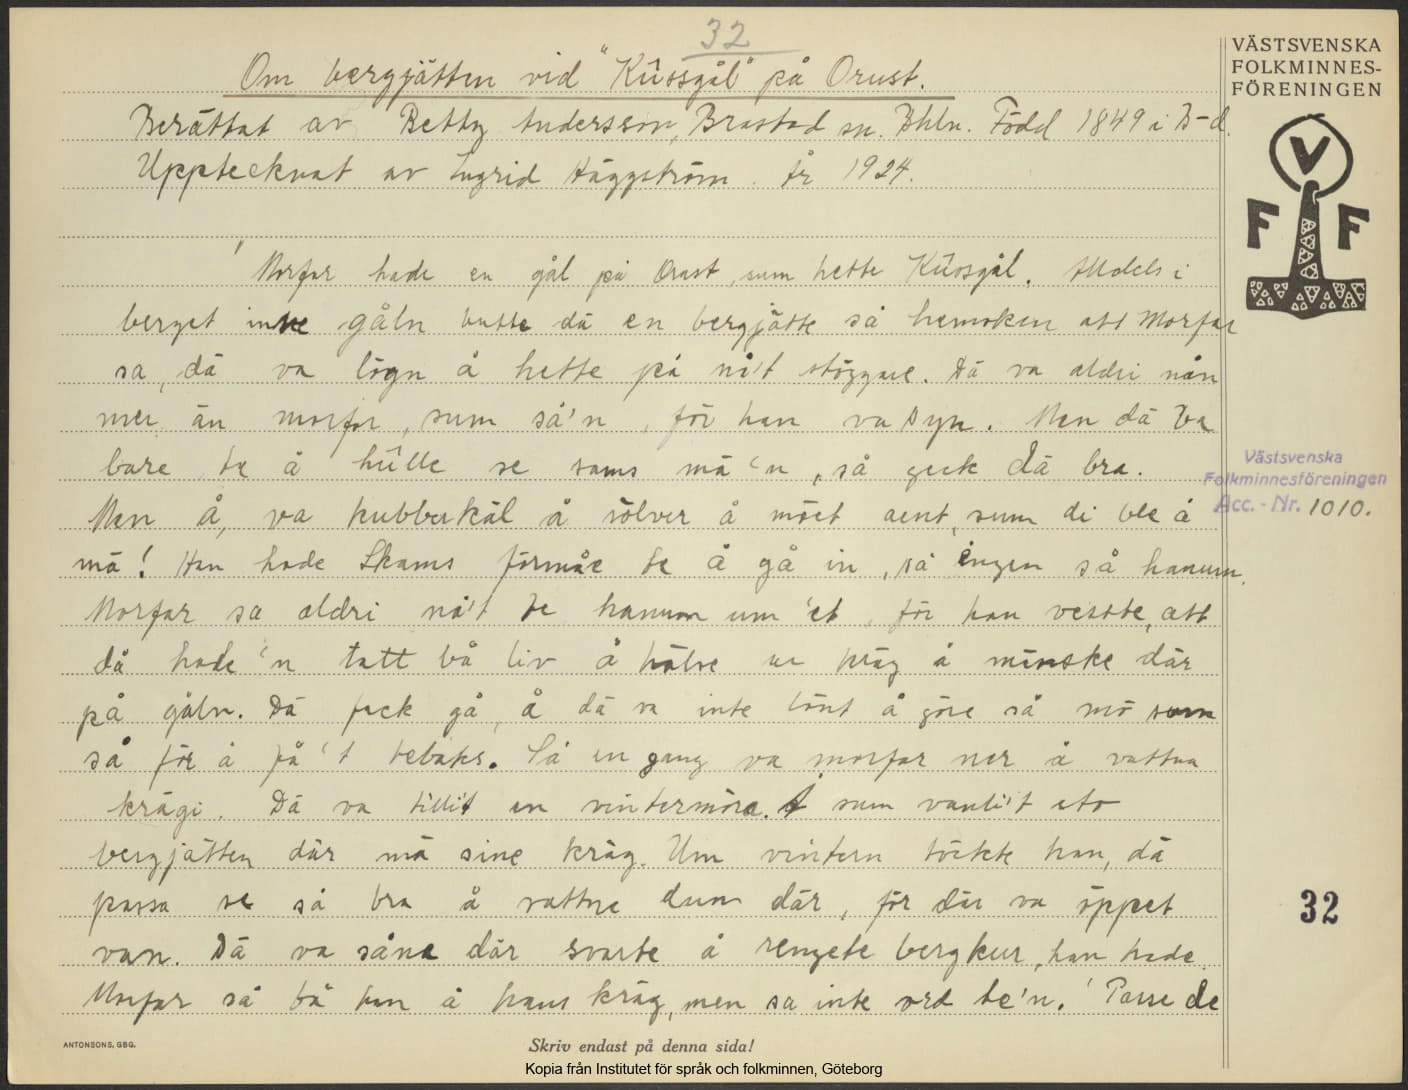 32
Om bergjätten vid "Kûssgål" på Orust.
Berättat av Betty Andersson, Brastad sn. Bhln. Född 1849 i B-d.
Upptecknat av Ingrid Häggström. År 1924.
VÄSTSVENSKA
FOLKMINNES-
FÖRENINGEN
V
F F
"Morfar hade en gål på Orust, sum hette Kûssgål. Alldels i
berget inve gåln butte dä en bergjätte så hemsken att Morfar
sa, dä va lögn å hette på nå't stöggare. Dä va aldri nån
mer än morfar, sum så'n, för han va syn. Men dä va
bare te å hûlle se sams mä 'n, så geck dä bra.
Men å, va kubberkäl å sölver å möet aent, sum di ble å
mä! Han hade Skams förmåe te å gå in, så ingen så hanum.
Morfar sa aldri nå't te hanum um 'et, för han vesste, att
då hade 'n tatt bå liv å hälse ur kräg å mänske där
på gåln. Dä feck gå, å dä va inte lönt å göre så mö sum
så för å få 't tebaks. Så en gang va morfar ner å vattna
krägi. Dä va tillit en vintermöra. sum vanli't sto
bergjätten där mä sine kräg. Um vintern töckte han, dä
passa se så bra å vattne dum där, för där va öppet
van. Dä va såna där svarte å rengete bergkur, han hade.
Morfar så bå han å hans kräg, men sa inte ord te'n. 'Passe de
Västsvenska
Folkminnesföreningen
Acc.-Nr. 1010.
32
ANTONSONS, GBG.
Skriv endast på denna sida!
Kopia från Institutet för språk och folkminnen, Göteborg